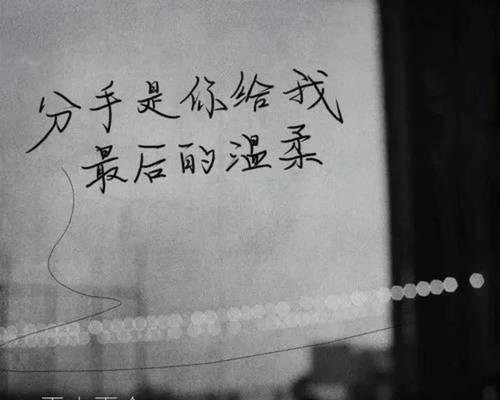 分手是你给我
最后的温柔